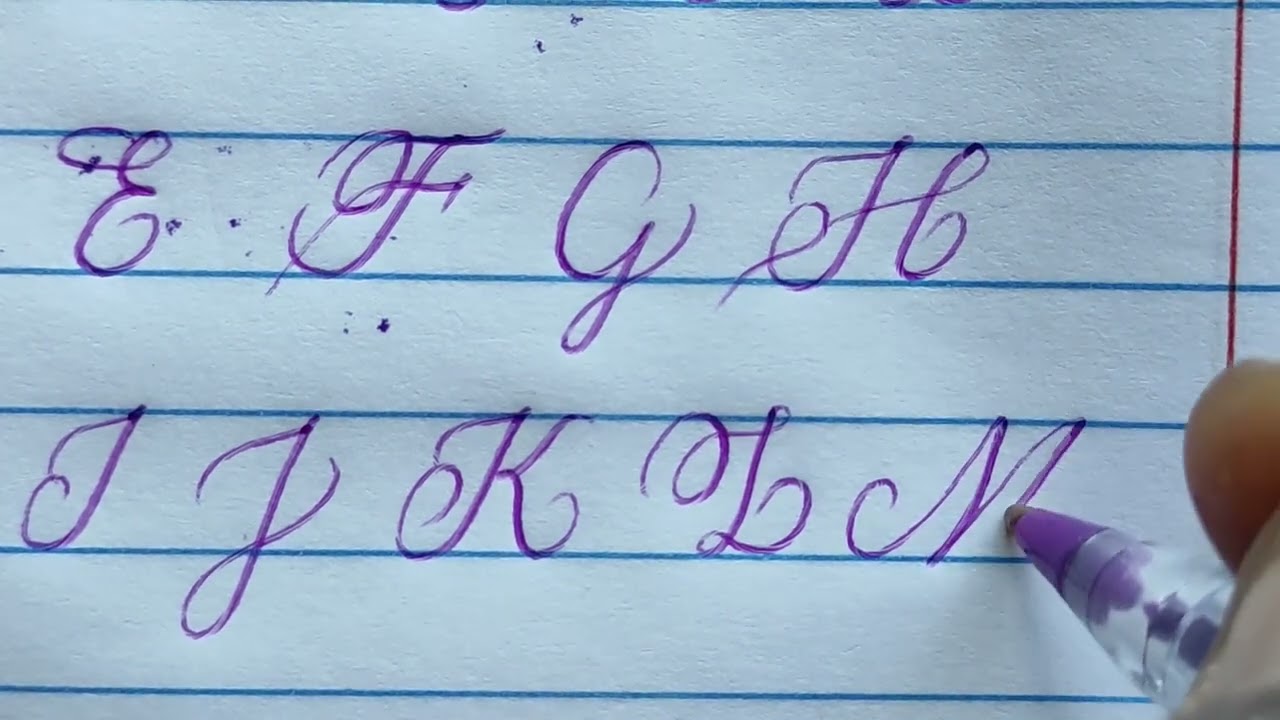 E F G H
I J K L M